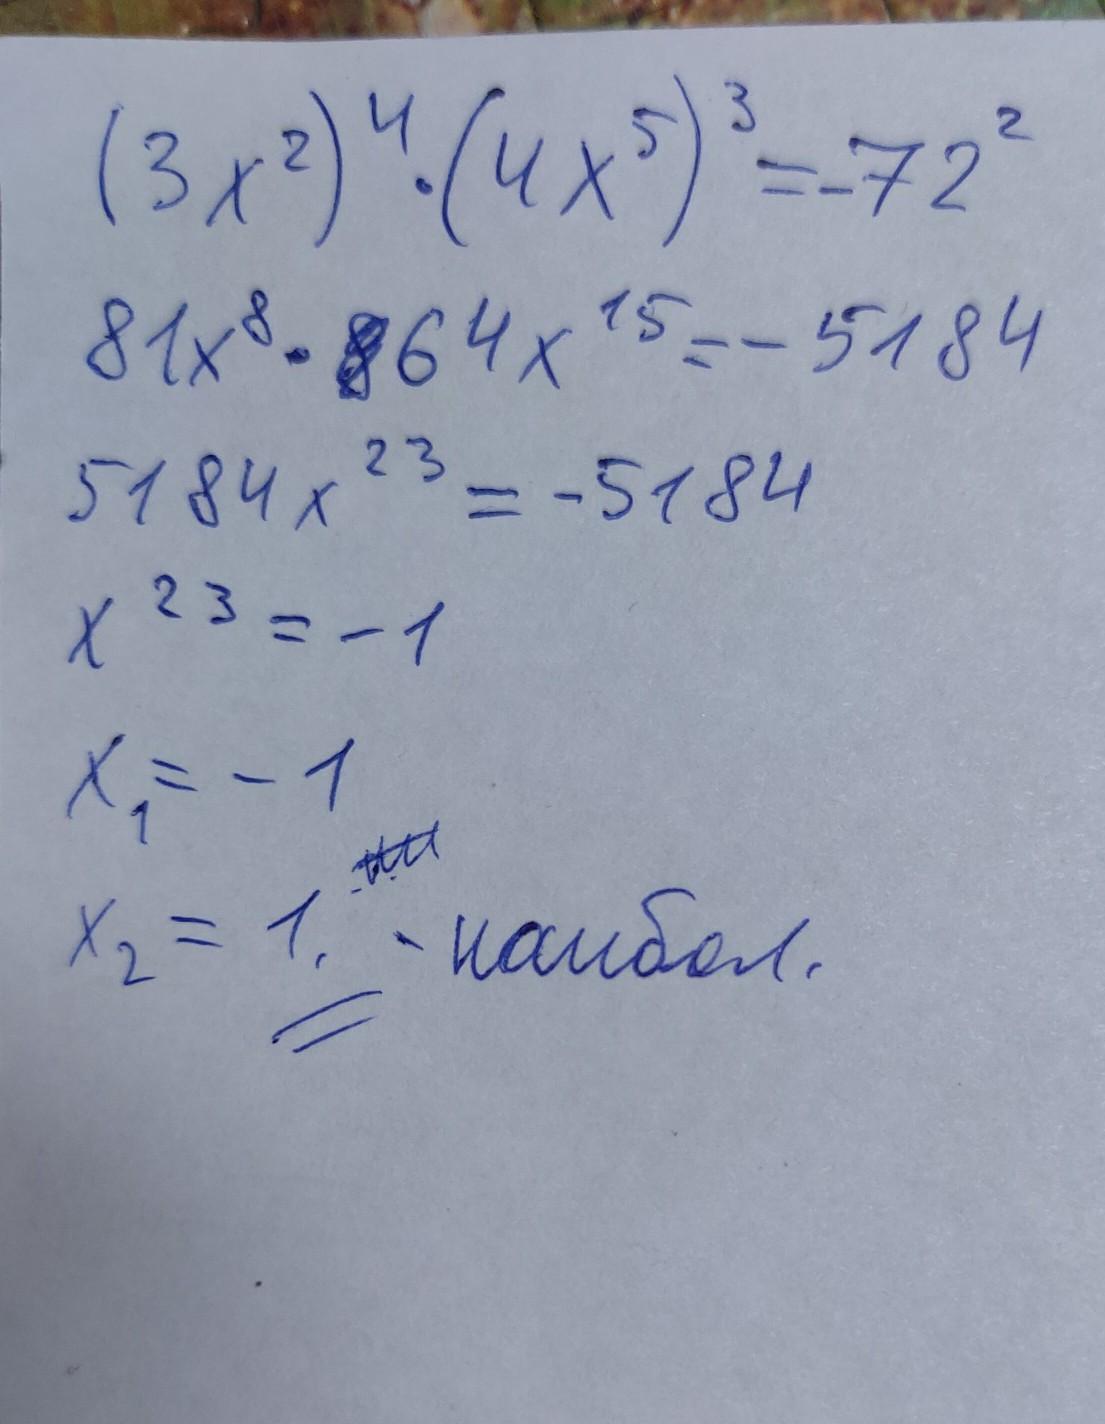 (3x²)⁴·(4x⁵)³=-72²
81x⁸·64x¹⁵=-5184
5184x²³=-5184
x²³=-1
x₁=-1
x₂=1. - наибол.